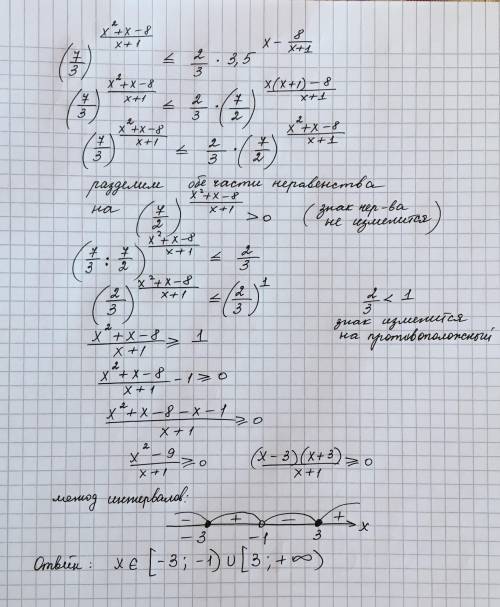 (7/3)^((x²+x-8)/(x+1)) ≤ 2/3 · 3,5^(x - 8/(x+1))
(7/3)^((x²+x-8)/(x+1)) ≤ 2/3 · (7/2)^((x(x+1)-8)/(x+1))
(7/3)^((x²+x-8)/(x+1)) ≤ 2/3 · (7/2)^((x²+x-8)/(x+1))
разделим обе части неравенства
на (7/2)^((x²+x-8)/(x+1)) > 0 (знак нер-ва не изменится)
(7/3 : 7/2)^((x²+x-8)/(x+1)) ≤ 2/3
(2/3)^((x²+x-8)/(x+1)) ≤ (2/3)^1
2/3 < 1
знак изменится
на противоположный
(x²+x-8)/(x+1) ≥ 1
(x²+x-8)/(x+1) - 1 ≥ 0
(x²+x-8-x-1)/(x+1) ≥ 0
(x²-9)/(x+1) ≥ 0 ((x-3)(x+3))/(x+1) ≥ 0
метод интервалов:
- + - +
-3 -1 3 x
Ответ: x ∈ [-3; -1) ∪ [3; +∞)